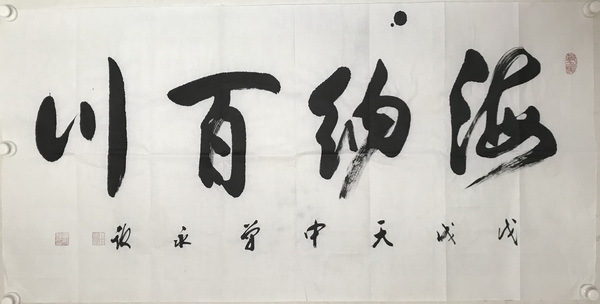 海纳百川
戊戌天中曾永